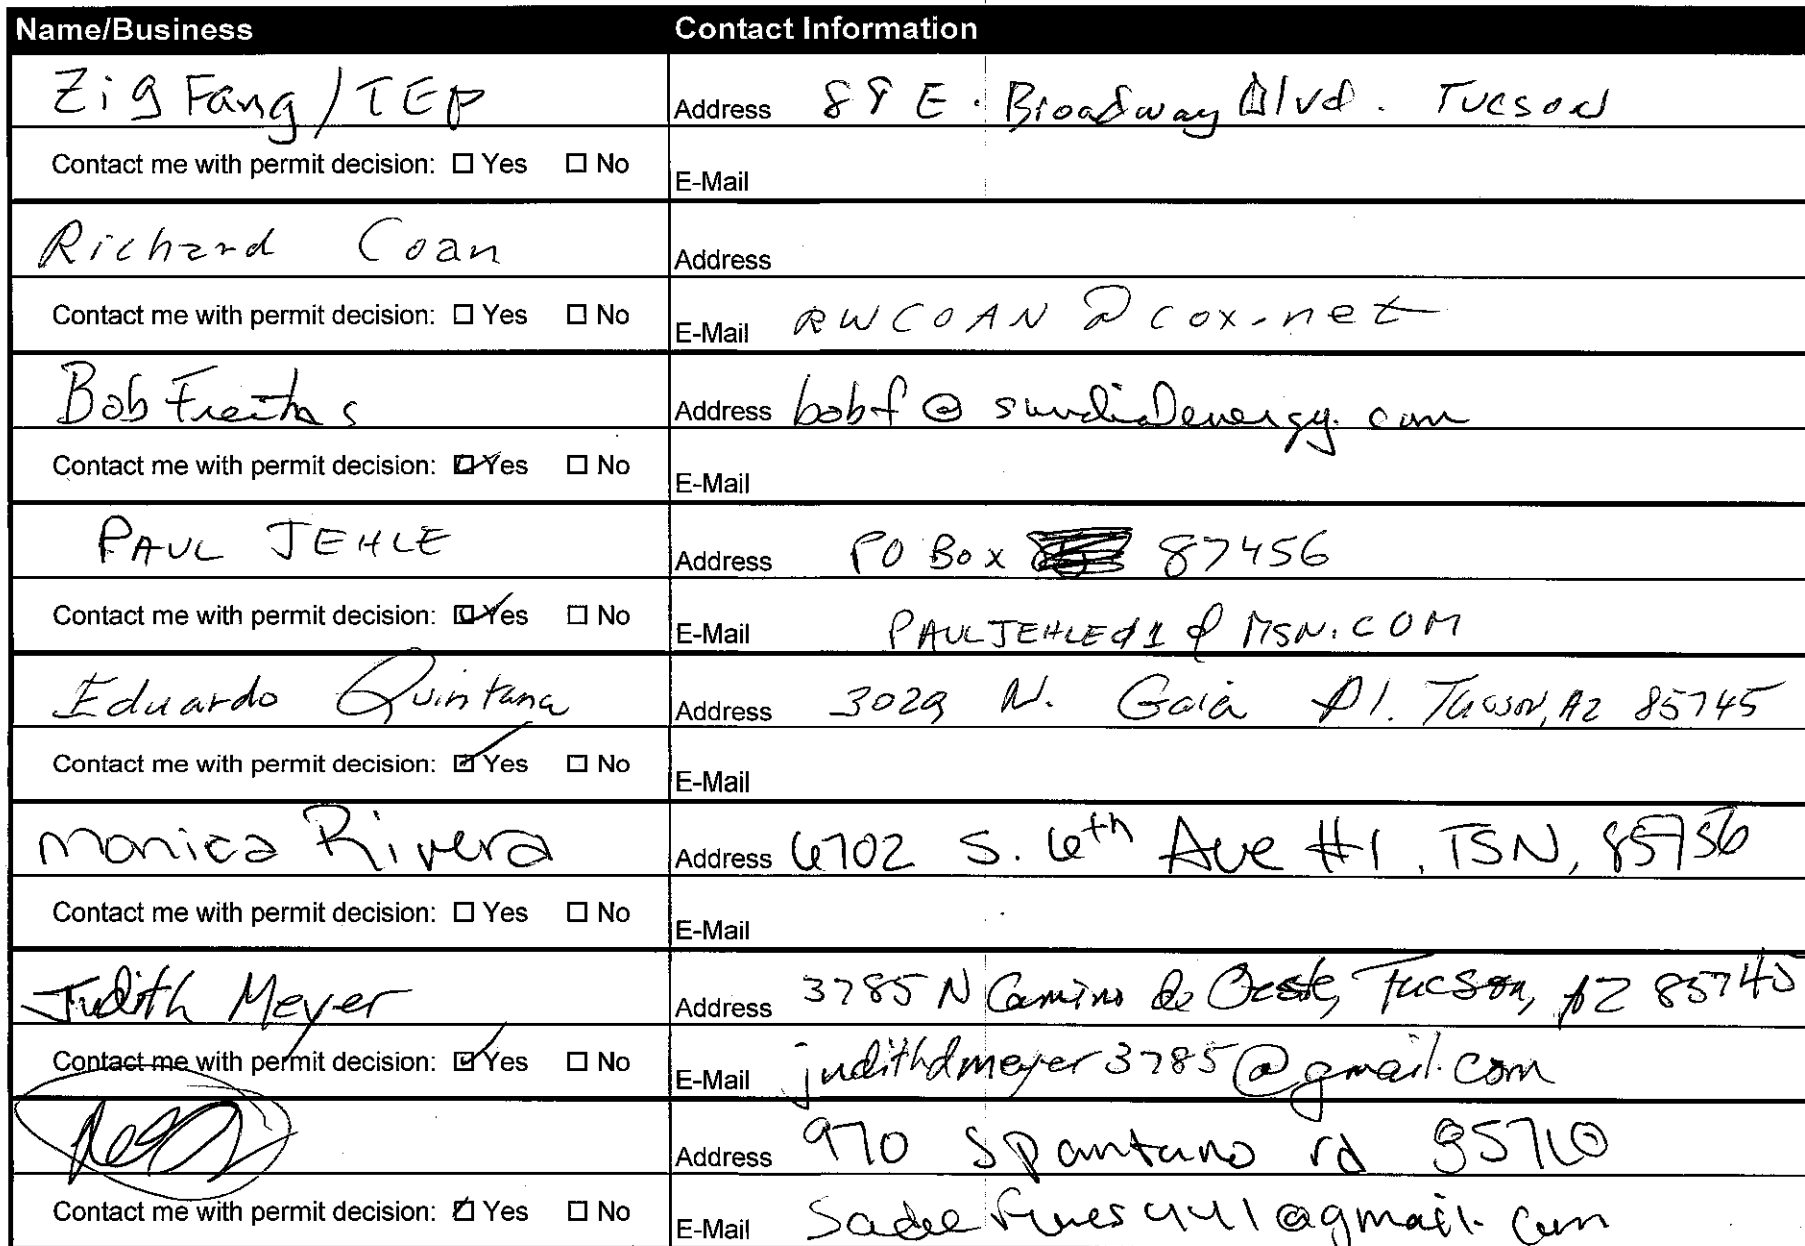 Name/Business Contact Information
Zig Fang/TEP Address 88 E. Broadway Blvd. Tucson
Contact me with permit decision: ☐ Yes ☐ No E-Mail
Richard Coan Address
Contact me with permit decision: ☐ Yes ☐ No E-Mail RWCOAN@cox.net
Bob Freitas Address bobf@sundialenergy.com
Contact me with permit decision: ☑ Yes ☐ No E-Mail
PAUL JEHLE Address PO Box 87456
Contact me with permit decision: ☑ Yes ☐ No E-Mail @ MSN.COM
Eduardo Quintana Address 3029 N. Gaia Pl. Tucson, AZ 85745
Contact me with permit decision: ☑ Yes ☐ No E-Mail
Monica Rivera Address 6702 S. 6th Ave #1, TSN, 85756
Contact me with permit decision: ☐ Yes ☐ No E-Mail
Judith Meyer Address 3785 N Camino de Oeste, Tucson, AZ 85745
Contact me with permit decision: ☑ Yes ☐ No E-Mail judithdmeyer3785@gmail.com
Address 970 S Pantano rd 85710
Contact me with permit decision: ☑ Yes ☐ No E-Mail